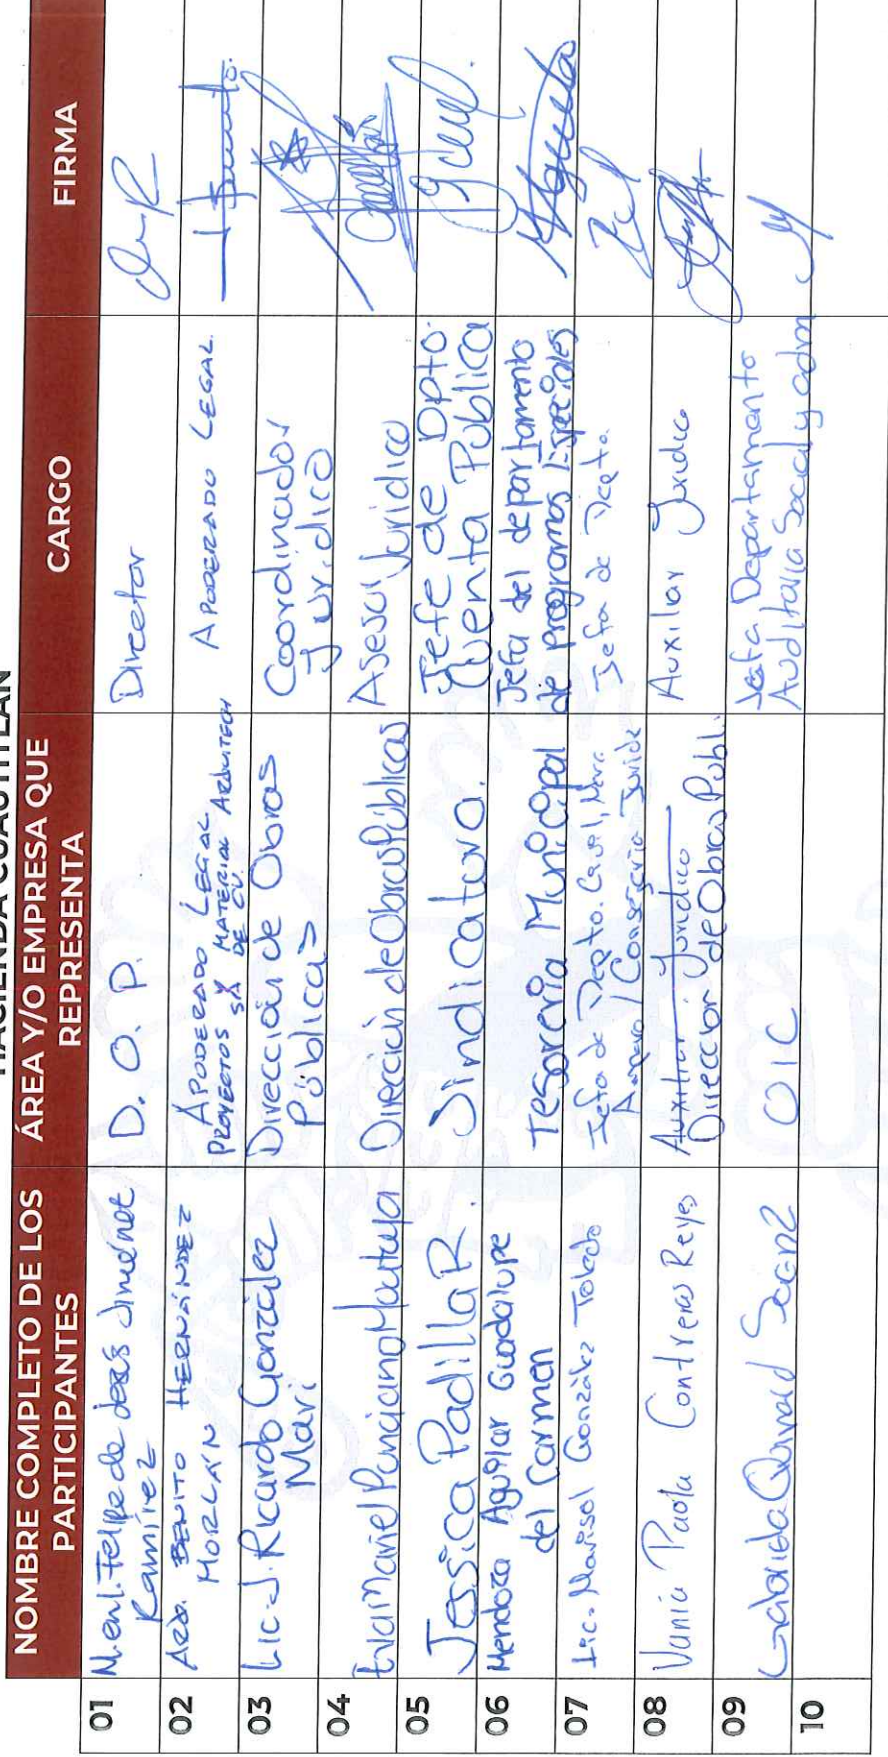 HACIENDA CUAUTITLÁN
NOMBRE COMPLETO DE LOS PARTICIPANTES
ÁREA Y/O EMPRESA QUE REPRESENTA
CARGO
FIRMA
01
M. en I. Felipe de Jesús Jiménez
Ramírez
D. O. P.
Director
02
ARQ. BENITO HERNÁNDEZ
MORLÁN
APODERADO LEGAL
PROYECTOS Y MATERIAL ARQUITECH
SA DE CV.
APODERADO LEGAL
03
Lic. J. Ricardo González
Mari
Dirección de Obras
Públicas
Coordinador
Jurídico
04
Ponciano
Dirección de Obras Públicas
Asesor Jurídico
05
Jessica Padilla R.
Sindicatura.
Jefe de Dpto.
Cuenta Pública
06
Mendoza Aguilar Guadalupe
del Carmen
Tesorería Municipal
Jefa del departamento
de programas Especiales
07
Lic. Marisol González Toledo
Jefa de Depto. Civil, Merc.
Amparo / Consejería Juridc
Jefa de Depto.
08
Vania Paola Contreras Reyes
Auxiliar Jurídico
Dirección de Obras Publ.
Auxiliar Jurídico
09
Gabriela
OIC
Jefa Departamento
Auditoría Social y adm
10